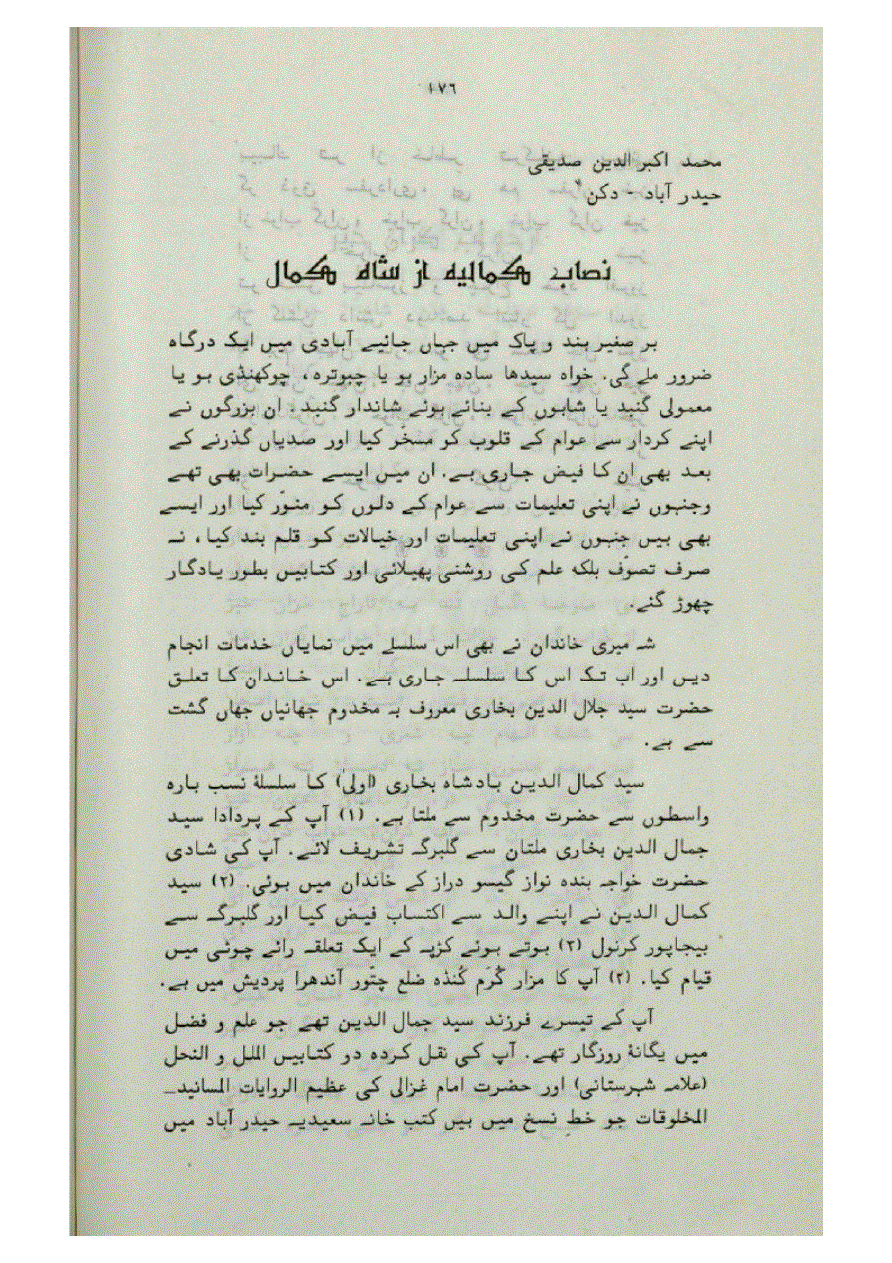 ۱۷۶
محمد اکبر الدین صدیقی
حیدر آباد - دکن
نصاب کمالیہ از شاہ کمال
بر صغیر ہند و پاک میں جہاں جائیے آبادی میں ایک درگاہ
ضرور ملے گی. خواہ سیدھا سادہ مزار ہو یا چبوترہ، چوکھنڈی ہو یا
معمولی گنبد یا شاہوں کے بنائے ہوئے شاندار گنبد. ان بزرگوں نے
اپنے کردار سے عوام کے قلوب کو مسخّر کیا اور صدیاں گذرنے کے
بعد بھی ان کا فیض جاری ہے. ان میں ایسے حضرات بھی تھے
وجنہوں نے اپنی تعلیمات سے عوام کے دلوں کو منوّر کیا اور ایسے
بھی ہیں جنہوں نے اپنی تعلیمات اور خیالات کو قلم بند کیا، نہ
صرف تصوّف بلکہ علم کی روشنی پھیلائی اور کتابیں بطور یادگار
چھوڑ گئے.
شہ میری خاندان نے بھی اس سلسلے میں نمایاں خدمات انجام
دیں اور اب تک اس کا سلسلہ جاری ہے. اس خاندان کا تعلق
حضرت سید جلال الدین بخاری معروف بہ مخدوم جہانیاں جہاں گشت
سے ہے.
سید کمال الدین بادشاہ بخاری (اولی) کا سلسلۂ نسب بارہ
واسطوں سے حضرت مخدوم سے ملتا ہے. (۱) آپ کے پردادا سید
جمال الدین بخاری ملتان سے گلبرگہ تشریف لائے. آپ کی شادی
حضرت خواجہ بندہ نواز گیسو دراز کے خاندان میں ہوئی. (۲) سید
کمال الدین نے اپنے والد سے اکتساب فیض کیا اور گلبرگہ سے
بیجاپور کرنول (۳) ہوتے ہوئے کڑپہ کے ایک تعلقہ رائے چوٹی میں
قیام کیا. (۴) آپ کا مزار گرّم کُنڈہ ضلع چتّور آندھرا پردیش میں ہے.
آپ کے تیسرے فرزند سید جمال الدین تھے جو علم و فضل
میں یگانۂ روزگار تھے. آپ کی نقل کردہ دو کتابیں الملل و النحل
(علامہ شہرستانی) اور حضرت امام غزالی کی عظیم الروایات المسانیدـ
المخلوقات جو خطِ نسخ میں ہیں کتب خانہ سعیدیہ حیدر آباد میں